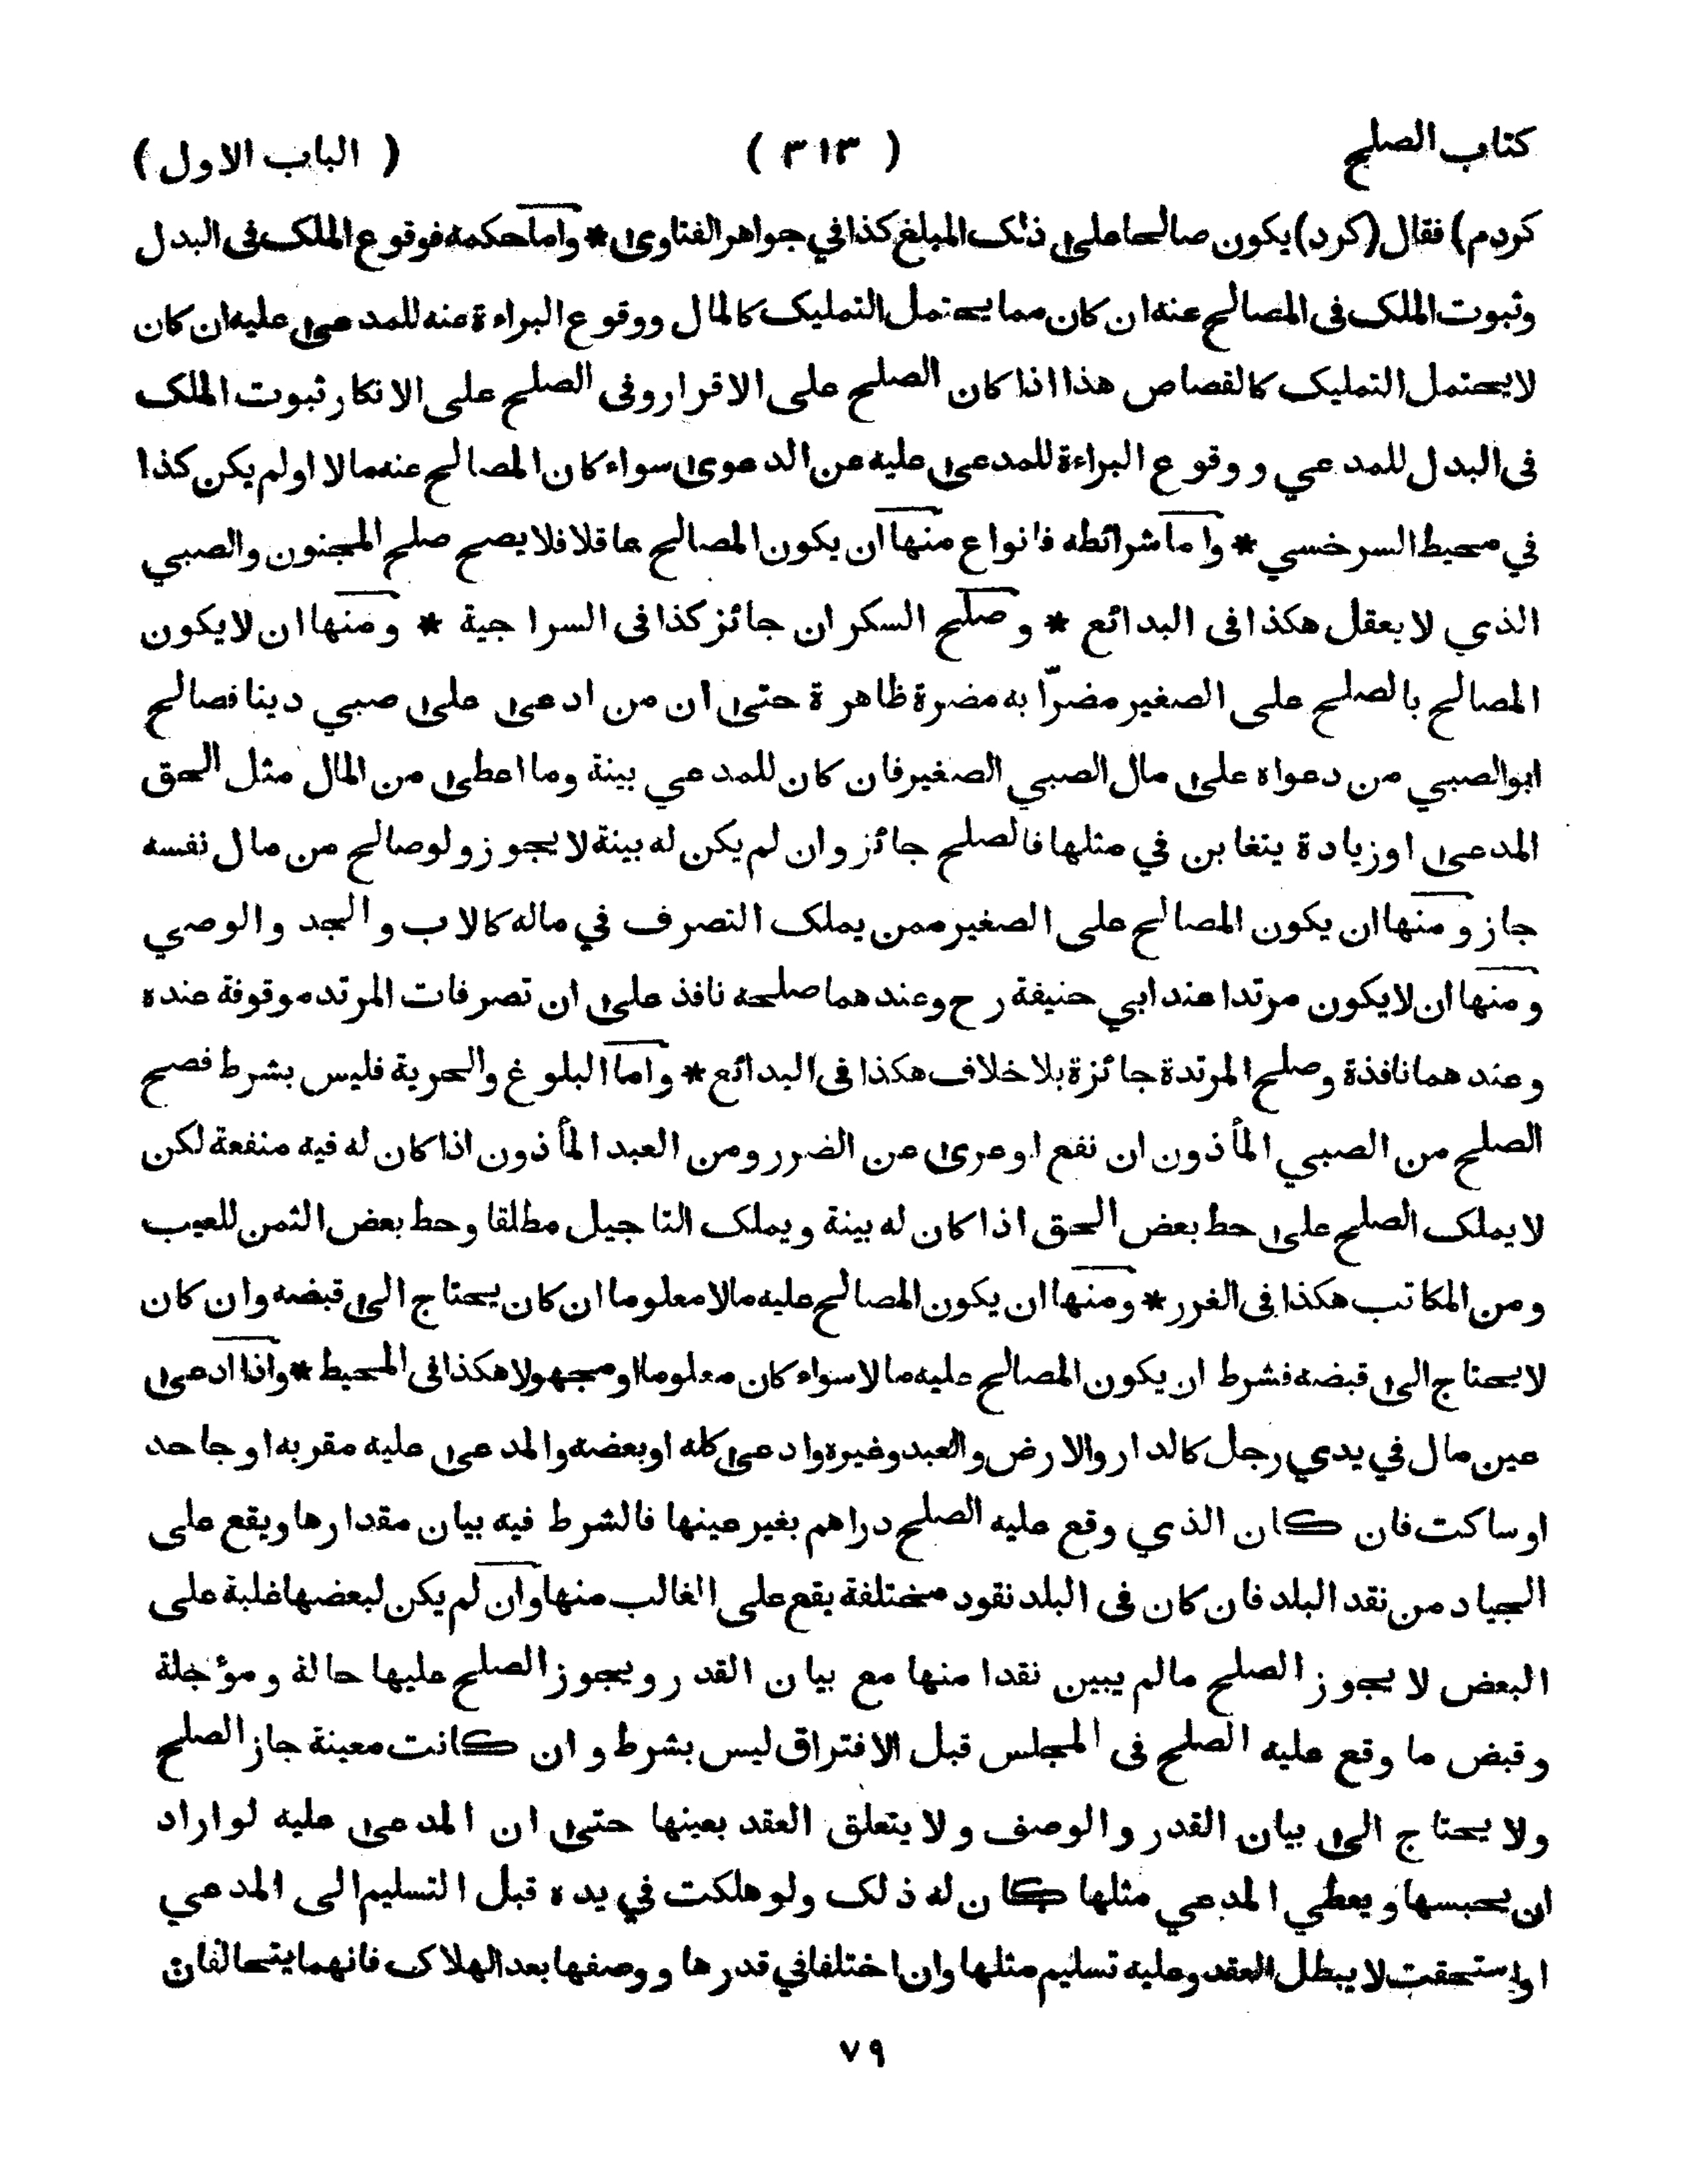 كتاب الصلح ( ٣١٣ ) ( الباب الاول )
كردم) فقال (كرد) يكون صالحا على ذلك المبلغ كذا في جواهر الفتاوى * واما حكمه فوقوع الملك فى البدل
وثبوت الملك فى المصالح عنه ان كان مما يحتمل التمليك كالمال ووقوع البراءة عنه للمدعى عليه ان كان
لا يحتمل التمليك كالقصاص هذا اذا كان الصلح على الاقرار وفى الصلح على الانكار ثبوت الملك
فى البدل للمدعي و وقوع البراءة للمدعى عليه عن الدعوى سواء كان المصالح عنه مالا اولم يكن كذا
في محيط السرخسي * واما شرائطه فانواع منها ان يكون المصالح عاقلا فلا يصح صلح المجنون والصبي
الذي لا يعقل هكذا فى البدائع * و صلح السكران جائز كذا فى السراجية * ومنها ان لا يكون
المصالح بالصلح على الصغير مضرّا به مضرة ظاهرة حتى ان من ادعى على صبي دينا فصالح
ابوالصبي من دعواه على مال الصبي الصغير فان كان للمدعي بينة وما اعطى من المال مثل الحق
المدعى اوزيادة يتغابن في مثلها فالصلح جائز وان لم يكن له بينة لا يجوز ولوصالح من مال نفسه
جاز و منها ان يكون المصالح على الصغير ممن يملك التصرف في ماله كالاب والجد والوصي
ومنها ان لايكون مرتدا عند ابي حنيفة رح وعندهما صلحه نافذ على ان تصرفات المرتد موقوفة عنده
وعندهما نافذة وصلح المرتدة جائزة بلا خلاف هكذا فى البدائع * واما البلوغ والحرية فليس بشرط فصح
الصلح من الصبي المأذون ان نفع اوعرى عن الضرر ومن العبد المأذون اذا كان له فيه منفعة لكن
لا يملك الصلح على حط بعض الحق اذا كان له بينة ويملك التاجيل مطلقا وحط بعض الثمن للعيب
ومن المكاتب هكذا فى الغرر * ومنها ان يكون المصالح عليه مالا معلوما ان كان يحتاج الى قبضه وان كان
لا يحتاج الى قبضه فشرط ان يكون المصالح عليه مالا سواء كان معلوما او مجهولا هكذا فى المحيط * واذا ادعى
عين مال في يدي رجل كالدار والارض والعبد وغيره وادعى كله اوبعضه والمدعى عليه مقربه او جاحد
اوساكت فان كان الذي وقع عليه الصلح دراهم بغير عينها فالشرط فيه بيان مقدارها ويقع على
الجياد من نقد البلد فان كان فى البلد نقود مختلفة يقع على الغالب منها وان لم يكن لبعضها غلبة على
البعض لا يجوز الصلح مالم يبين نقدا منها مع بيان القدر ويجوز الصلح عليها حالة ومؤجلة
وقبض ما وقع عليه الصلح فى المجلس قبل الافتراق ليس بشرط وان كانت معينة جاز الصلح
ولا يحتاج الى بيان القدر والوصف ولا يتعلق العقد بعينها حتى ان المدعى عليه لو اراد
ان يحبسها ويعطي المدعي مثلها كان له ذلك ولو هلكت في يده قبل التسليم الى المدعي
اواستحقت لا يبطل العقد وعليه تسليم مثلها وان اختلفا في قدرها و وصفها بعد الهلاك فانهما يتحالفان
٧٩